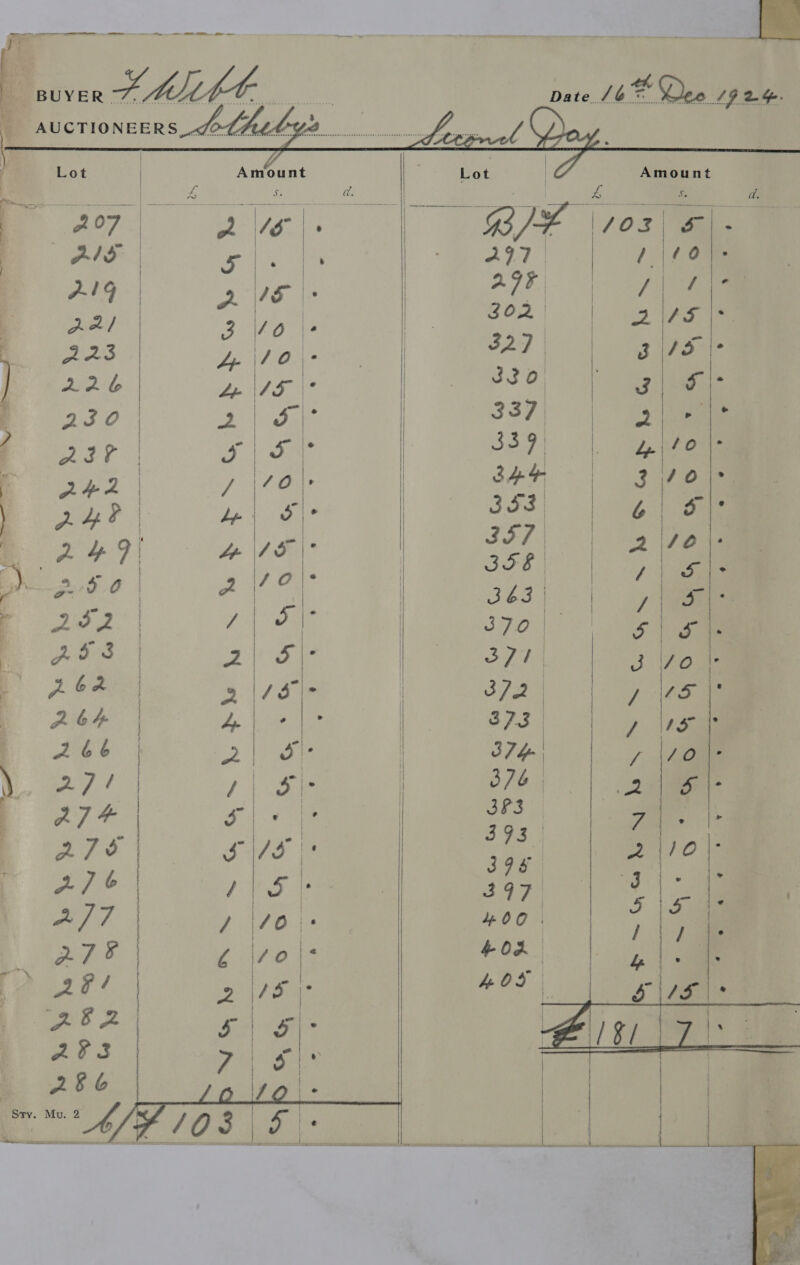 BUYER F. Whitt Date 16th Dec 1924.
AUCTIONEERS Sothebys Second Day.
Lot Amount
£ s. d.
207 2 15 -
215 5 - -
219 2 15 -
221 3 10 -
223 4 10 -
226 4 15 -
230 2 5 -
238 5 5 -
242 1 10 -
248 4 5 -
249 4 15 -
250 2 10 -
252 1 5 -
253 2 5 -
262 2 15 -
264 4 - -
266 2 5 -
271 1 5 -
274 5 - -
275 5 15 -
276 1 5 -
277 1 10 -
278 6 10 -
281 2 15 -
282 5 5 -
283 7 5 -
286 10 10 -
Sty. Mu. 2
C/F 103 5 -
Lot Amount
£ s. d.
B/F 103 5 -
297 1 10 -
298 1 1 -
302 2 15 -
327 3 15 -
330 3 5 -
337 2 - -
339 4 10 -
344 3 10 -
353 6 5 -
357 2 10 -
358 1 5 -
363 1 5 -
370 5 5 -
371 3 10 -
372 1 15 -
373 1 15 -
374 1 10 -
376 2 5 -
383 7 - -
393 2 10 -
396 3 - -
397 5 5 -
400 1 1 -
402 4 - -
405 5 15 -
£ 181 7 -